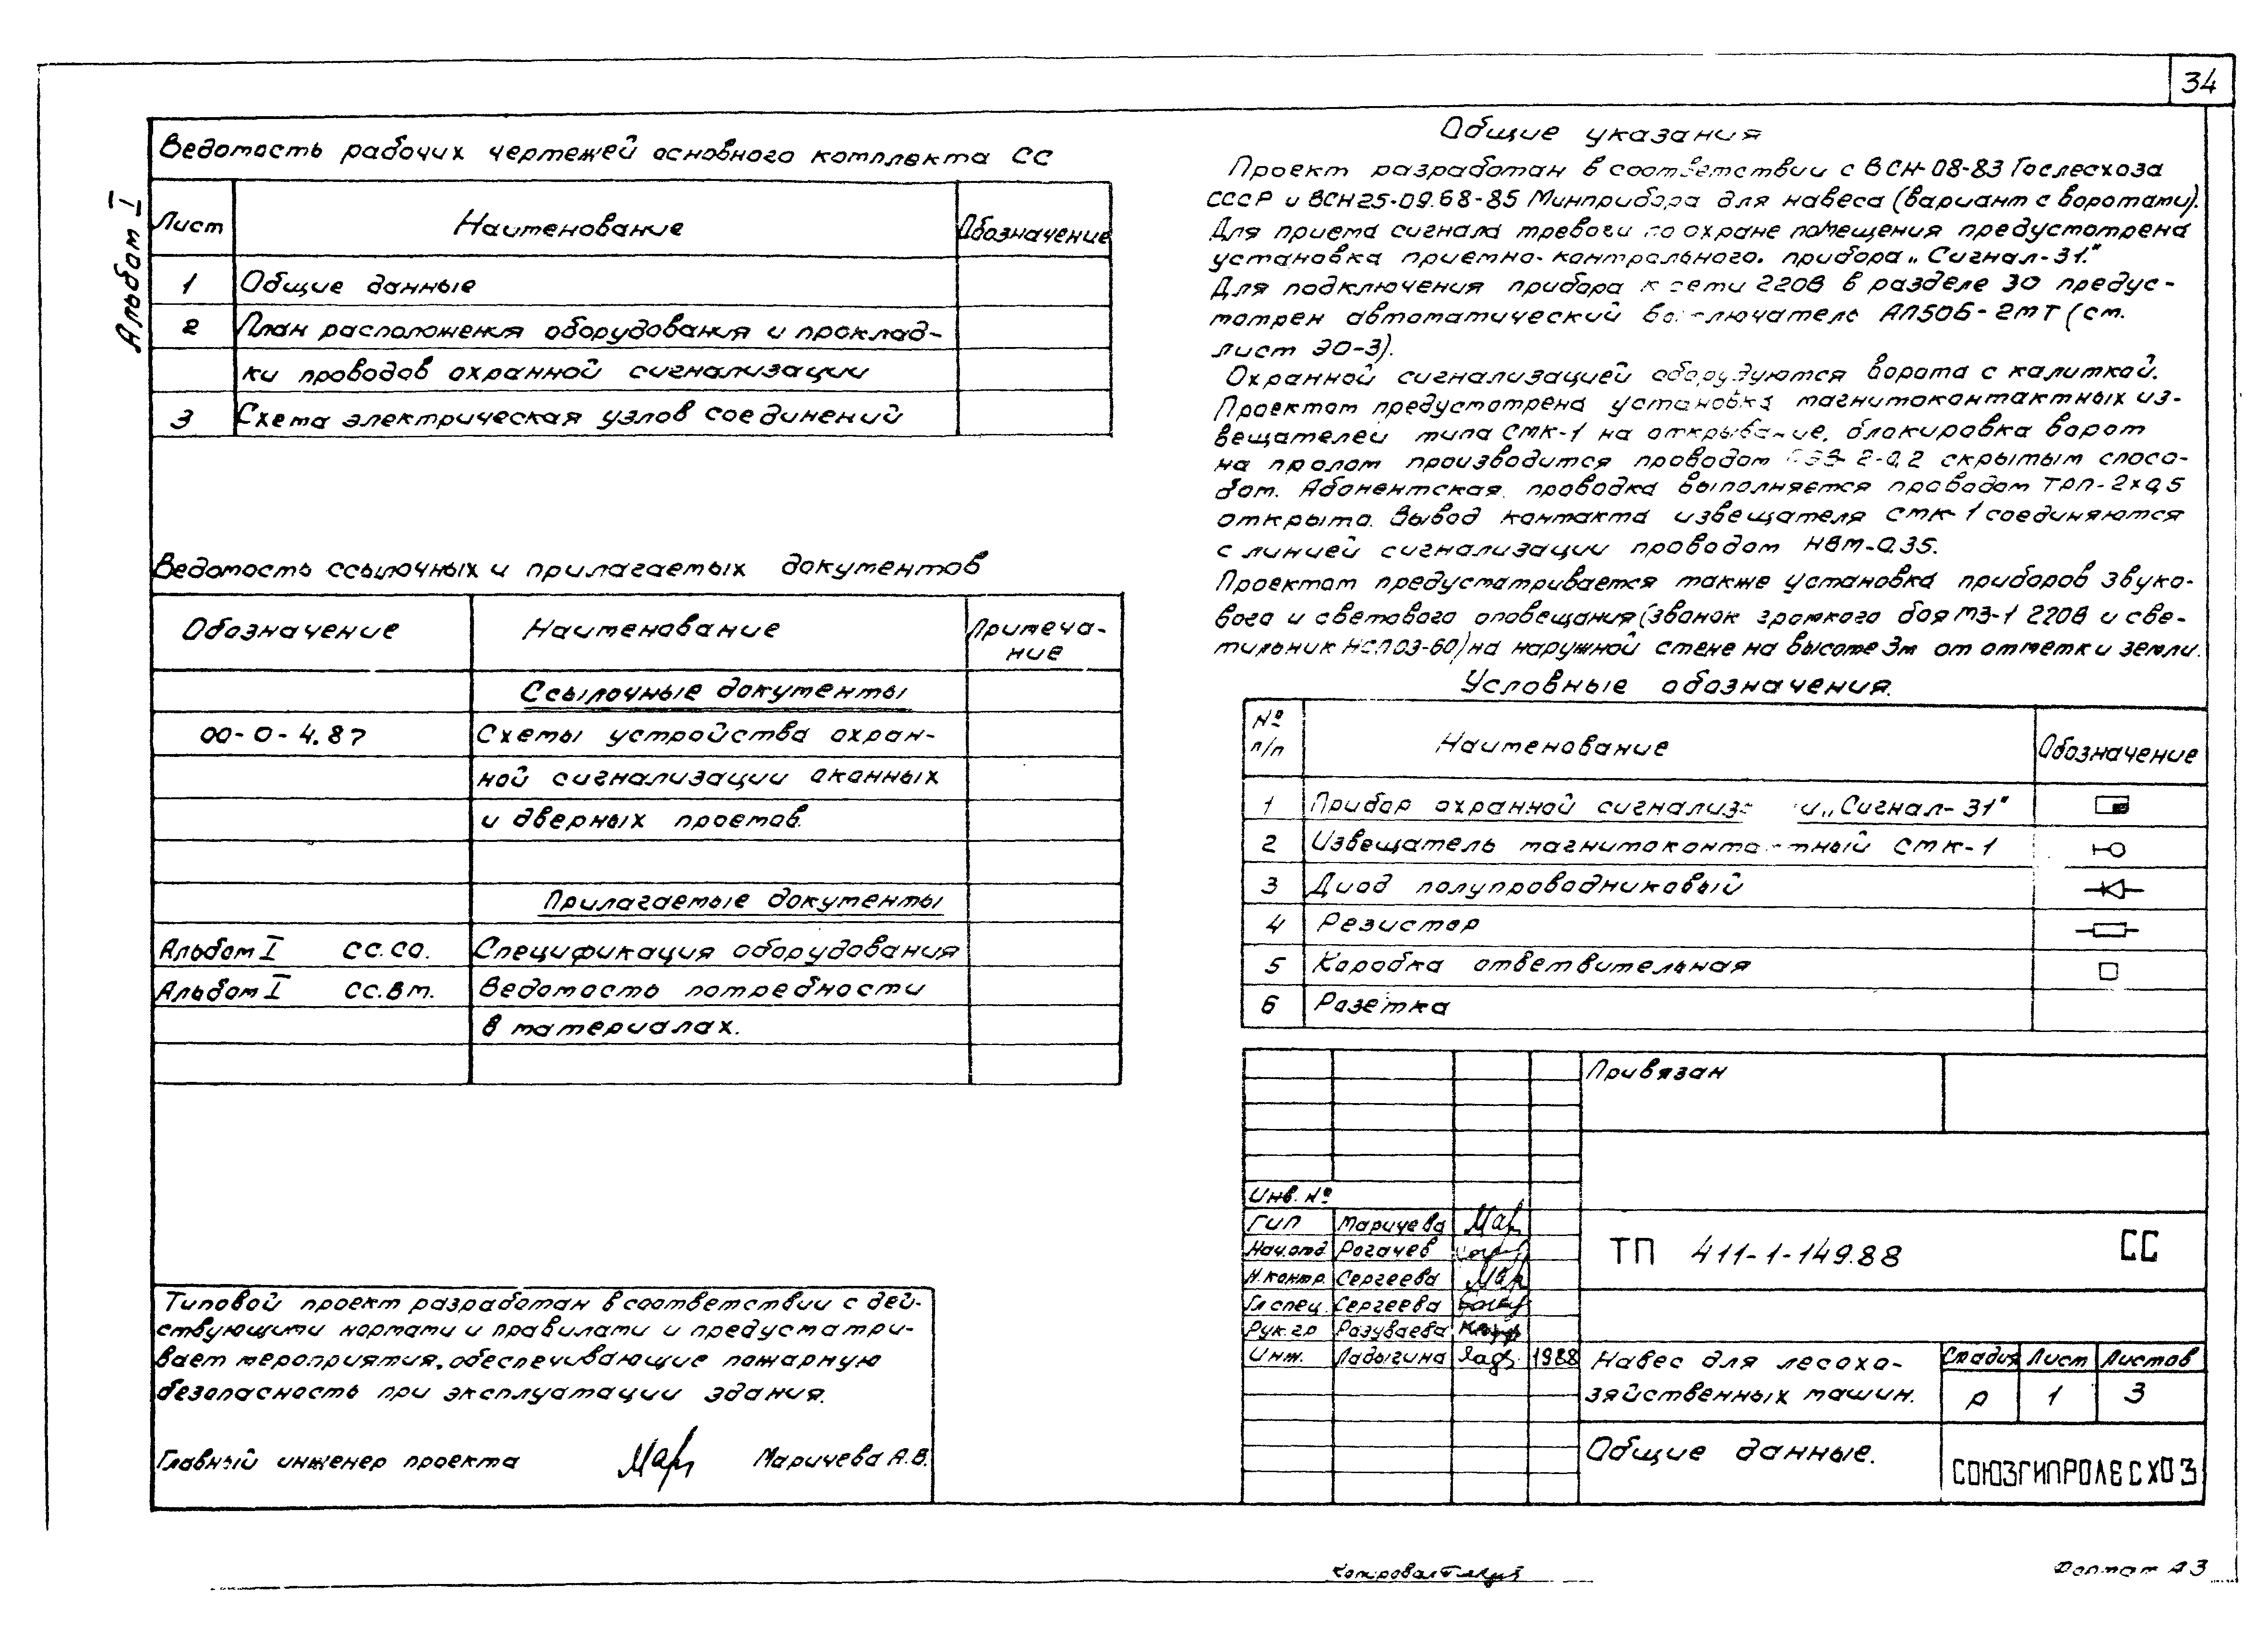 34
Альбом I
Ведомость рабочих чертежей основного комплекта СС
Лист Наименование Обозначение
1 Общие данные
2 План расположения оборудования и проклад-
ки проводов охранной сигнализации
3 Схема электрическая узлов соединений
Ведомость ссылочных и прилагаемых документов
Обозначение Наименование Примеча-
ние
Ссылочные документы
00-0-4.87 Схемы устройства охран-
ной сигнализации оконных
и дверных проемов.
Прилагаемые документы
Альбом I СС.СО. Спецификация оборудования
Альбом I СС.ВМ. Ведомость потребности
в материалах.
Типовой проект разработан в соответствии с дей-
ствующими нормами и правилами и предусматри-
вает мероприятия, обеспечивающие пожарную
безопасность при эксплуатации здания.
Главный инженер проекта Маричева А.В.
Общие указания
Проект разработан в соответствии с ВСН-08-83 Гослесхоза
СССР и ВСН25-09.68-85 Минприбора для навеса (вариант с воротами).
Для приема сигнала тревоги по охране помещения предусмотрена
установка приемно-контрольного. прибора „Сигнал-31."
Для подключения прибора к сети 220В в разделе ЭО предус-
мотрен автоматический выключатель АП50Б-2МТ (см.
лист ЭО-3).
Охранной сигнализацией оборудуются ворота с калиткой.
Проектом предусмотрена установка магнитоконтактных из-
вещателей типа СМК-1 на открывание, блокировка ворот
на пролом производится проводом 2-0,2 скрытым спосо-
бом. Абонентская проводка выполняется проводом ТРП-2х0,5
открыто. Вывод контакта извещателя СМК-1 соединяются
с линией сигнализации проводом НВМ-0.35.
Проектом предусматривается также установка приборов звуко-
вого и светового оповещания (звонок громкого боя МЗ-1 220В и све-
тильник НСП03-60) на наружной стене на высоте 3м от отметки земли.
Условные обозначения.
№
п/п Наименование Обозначение
1 Прибор охранной сигнализ и „Сигнал-31"
2 Извещатель магнитоконтактный СМК-1
3 Диод полупроводниковый
4 Резистор
5 Коробка ответвительная
6 Розетка
Привязан
Инв. №
ГИП Маричева
Нач.отд Рогачев
Н.контр. Сергеева
Гл спец. Сергеева
Рук.гр Разуваева
Инж. Ладыгина 1988
ТП 411-1-149.88 СС
Навес для лесохо-
зяйственных машин.
Стадия Лист Листов
Р 1 3
Общие данные.
СОЮЗГИПРОЛЕСХОЗ
Копировал
Формат А3